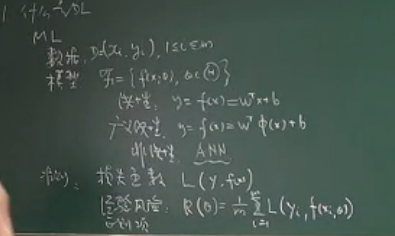 1 什么是DL
ML
数据: D={xi, yi}, 1≤i≤m
模型 F={f(x,θ), θ∈Θ}
线性: y=f(x)=wᵀx+b
广义线性: y=f(x)=wᵀϕ(x)+b
非线性: ANN
准则: 损失函数 L(y, f(x))
经验风险: R(θ)=1/m ∑ᵢ₌₁ᵐ L(yi, f(xi,θ))
正则项